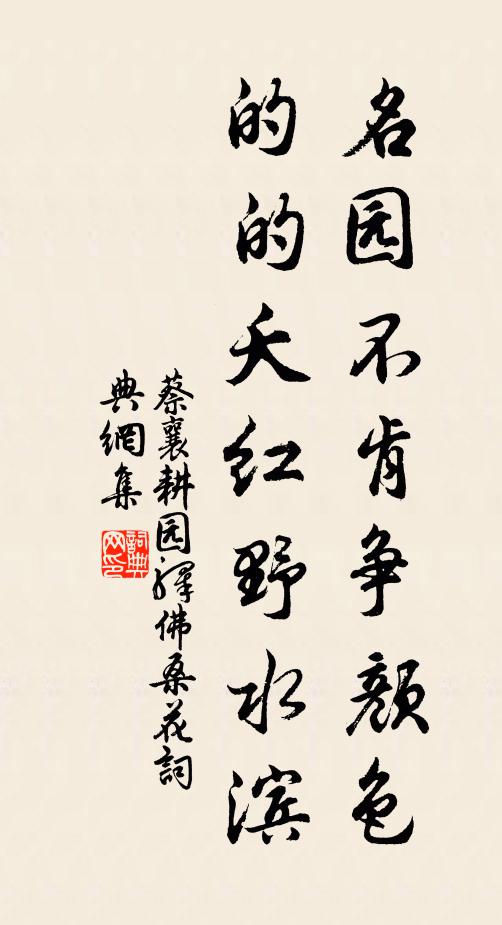 名园不肯争颜色
的的夭红野水滨
蔡襄耕园驿佛桑花词
典網集
詞典
网印